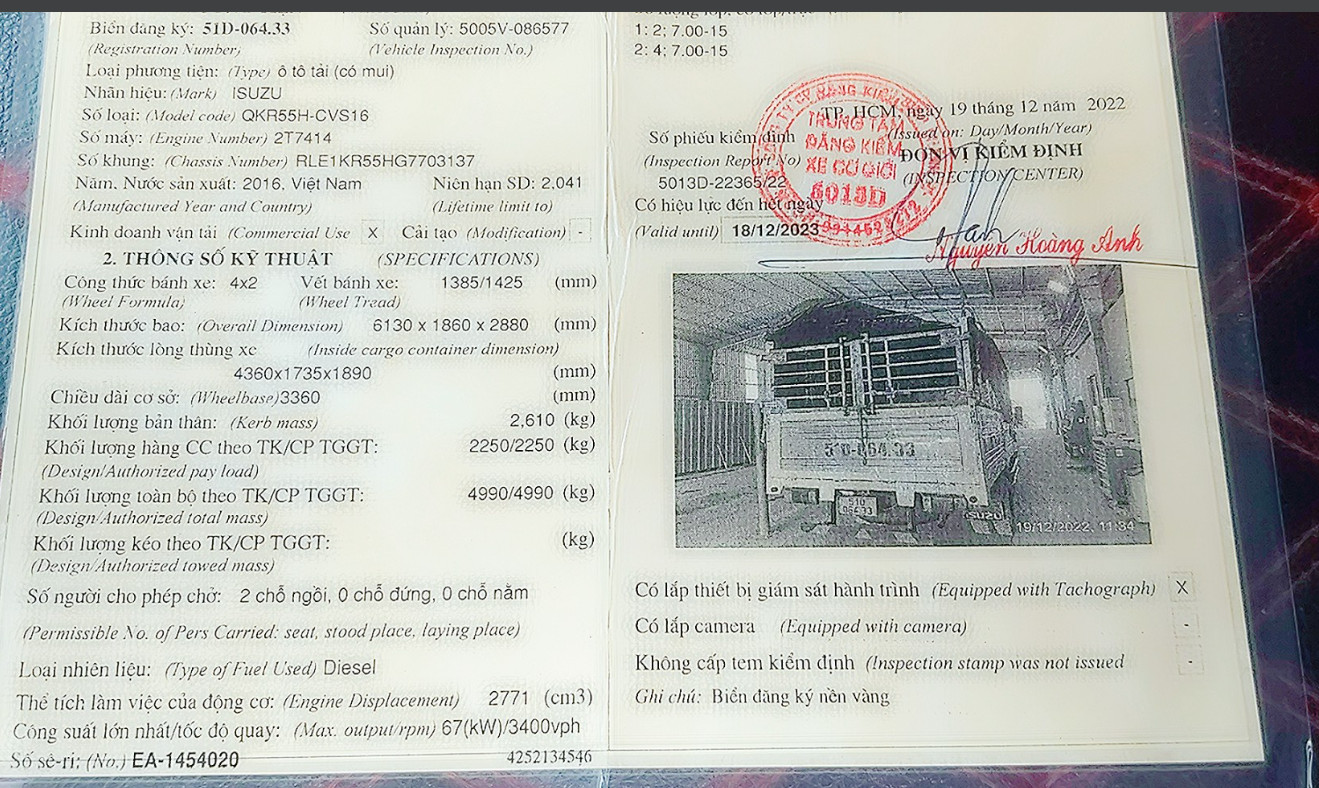 Biển đăng ký: 51D-064.33 Số quản lý: 5005V-086577
(Registration Number) (Vehicle Inspection No.)
Loại phương tiện: (Type) ô tô tải (có mui)
Nhãn hiệu: (Mark) ISUZU
Số loại: (Model code) QKR55H-CVS16
Số máy: (Engine Number) 2T7414
Số khung: (Chassis Number) RLE1KR55HG7703137
Năm, Nước sản xuất: 2016, Việt Nam Niên hạn SD: 2.041
(Manufactured Year and Country) (Lifetime limit to)
Kinh doanh vận tải (Commercial Use X Cải tạo (Modification) -
2. THÔNG SỐ KỸ THUẬT (SPECIFICATIONS)
Công thức bánh xe: 4x2 Vết bánh xe: 1385/1425 (mm)
(Wheel Formula) (Wheel Tread)
Kích thước bao: (Overall Dimension) 6130 x 1860 x 2880 (mm)
Kích thước lòng thùng xe (Inside cargo container dimension)
4360x1735x1890 (mm)
Chiều dài cơ sở: (Wheelbase)3360 (mm)
Khối lượng bản thân: (Kerb mass) 2,610 (kg)
Khối lượng hàng CC theo TK/CP TGGT: 2250/2250 (kg)
(Design/Authorized pay load)
Khối lượng toàn bộ theo TK/CP TGGT: 4990/4990 (kg)
(Design/Authorized total mass)
Khối lượng kéo theo TK/CP TGGT: (kg)
(Design/Authorized towed mass)
Số người cho phép chở: 2 chỗ ngồi, 0 chỗ đứng, 0 chỗ nằm
(Permissible No. of Pers Carried: seat, stood place, laying place)
Loại nhiên liệu: (Type of Fuel Used) Diesel
Thể tích làm việc của động cơ: (Engine Displacement) 2771 (cm3)
Công suất lớn nhất/tốc độ quay: (Max. output/rpm) 67(kW)/3400vph
Số sê-ri: (No.) EA-1454020 4252134546
1: 2; 7.00-15
2: 4; 7.00-15
TP. HCM, ngày 19 tháng 12 năm 2022
(Issued on: Day/Month/Year)
Số phiếu kiểm định ĐƠN VỊ KIỂM ĐỊNH
(Inspection Report No) (INSPECTION CENTER)
5013D-22365/22
Có hiệu lực đến hết ngày
(Valid until) 18/12/2023
TRUNG TÂM
ĐĂNG KIỂM
XE CƠ GIỚI
5013D
Nguyễn Hoàng Anh
51D-064.33
51D
06433
ISUZU
19/12/2022, 11:34
Có lắp thiết bị giám sát hành trình (Equipped with Tachograph) X
Có lắp camera (Equipped with camera) -
Không cấp tem kiểm định (Inspection stamp was not issued -
Ghi chú: Biển đăng ký nền vàng